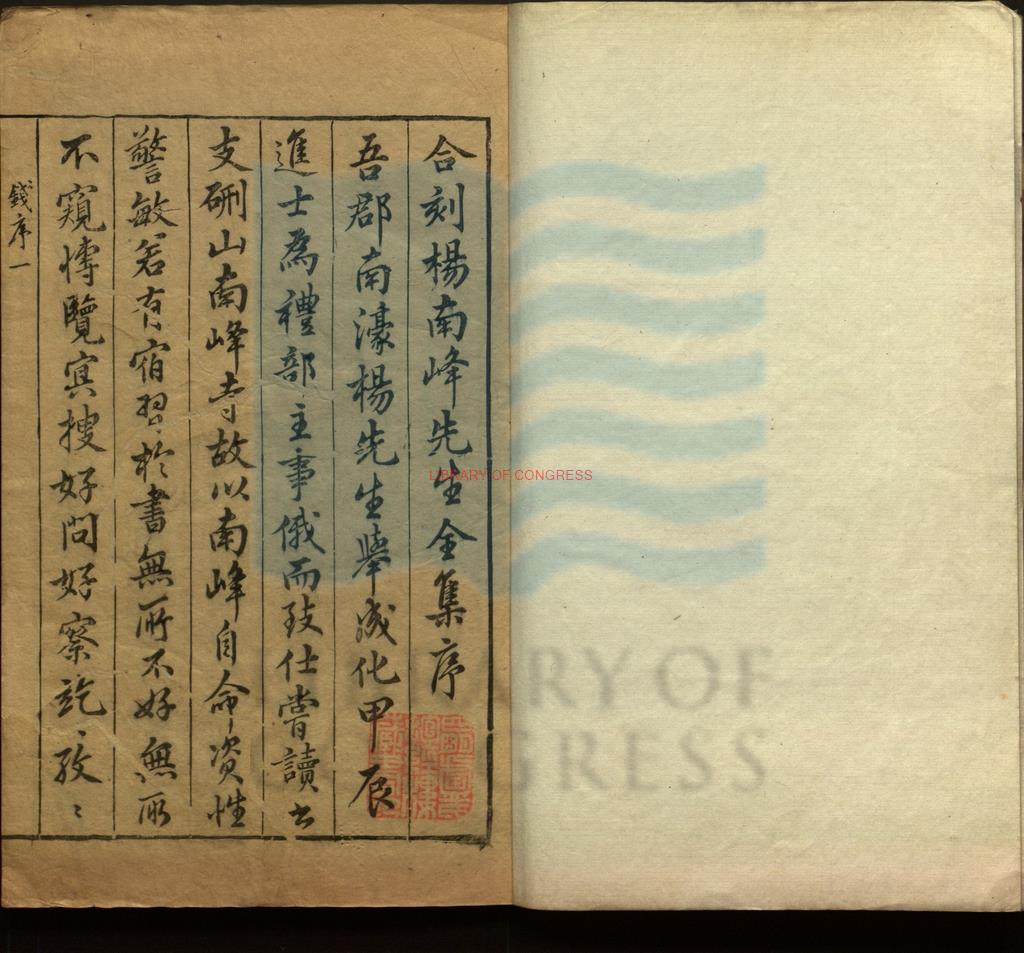 合刻楊南峰先生全集序
吾郡南濠楊先生舉成化甲辰
進士爲禮部主事俄而致仕嘗讀書
支硎山南峰寺故以南峰自命資性
警敏若有宿習於書無所不好無所
不窺博覽冥搜好問好察訖孜〻
錢序一
LIBRARY OF CONGRESS
LIBRARY OF CONGRESS